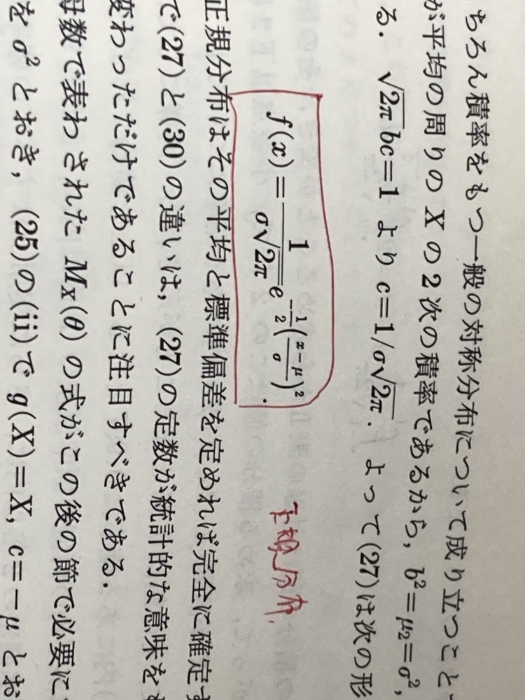 ちろん積率をもつ一般の対称分布について成り立つこと
が平均の周りの X の 2 次の積率であるから, b²=μ₂=σ²,
る. √2π bc=1 より c=1/σ√2π. よって(27)は次の形
f(x)=1/(σ√2π) e^{-1/2((x-μ)/σ)²}.
正規分布
正規分布はその平均と標準偏差を定めれば完全に確定す
で(27)と(30)の違いは, (27)の定数が統計的な意味をも
変わっただけであることに注目すべきである.
母数で表わされた M_X(θ) の式がこの後の節で必要に
を σ² とおき, (25)の(ii)で g(X)=X, c=-μ とお